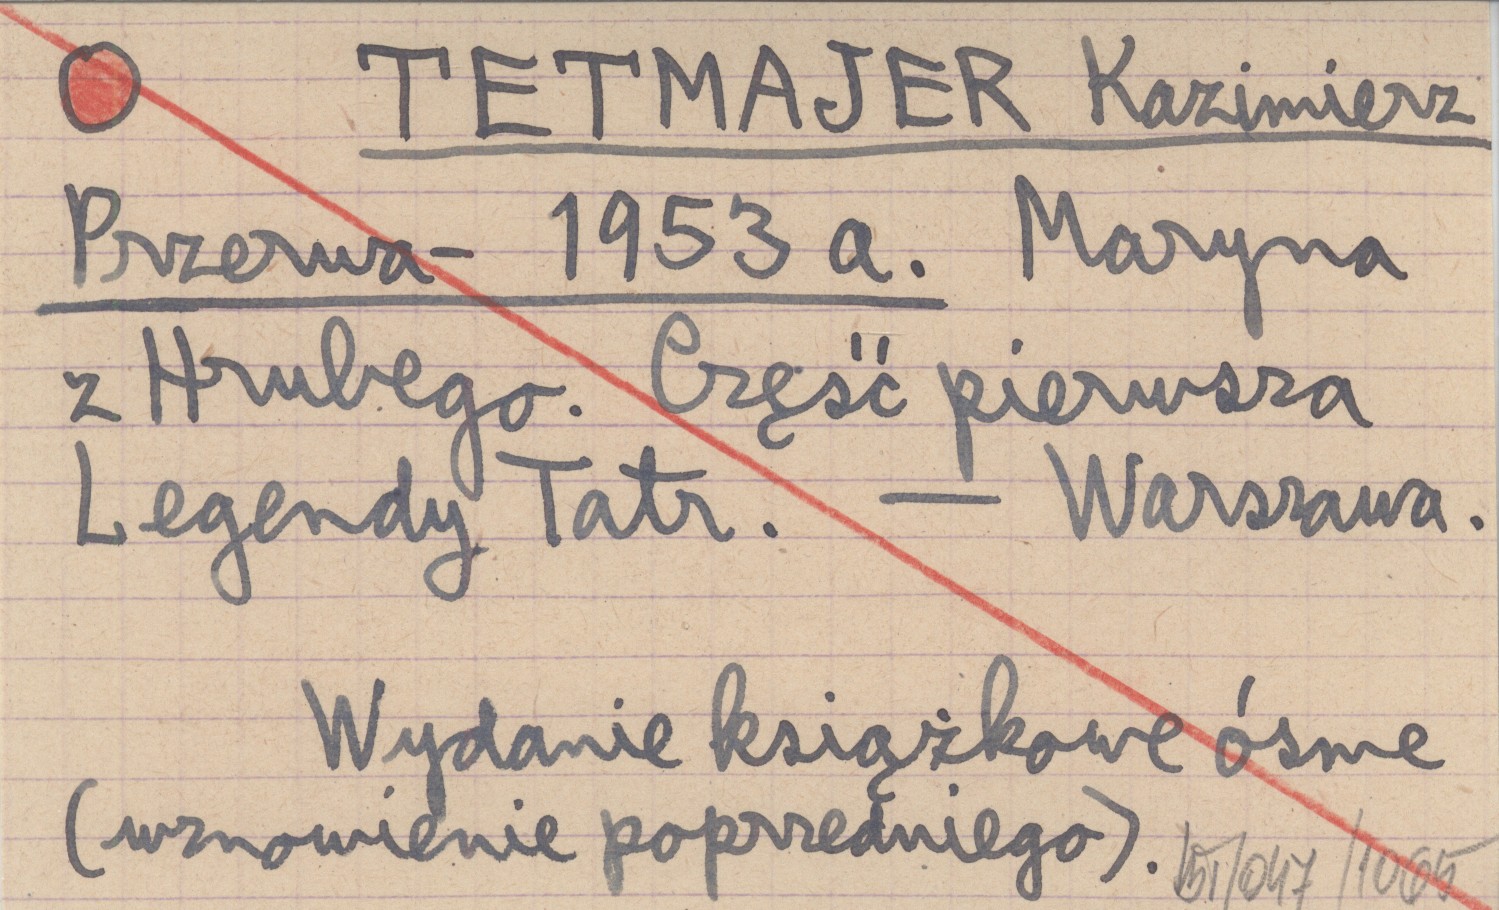 TETMAJER Kazimierz
Przerwa- 1953 a. Maryna
z Hrubego. Część pierwsza
Legendy Tatr. — Warszawa.
Wydanie książkowe ósme
(wznowienie poprzedniego).
151/047/1065